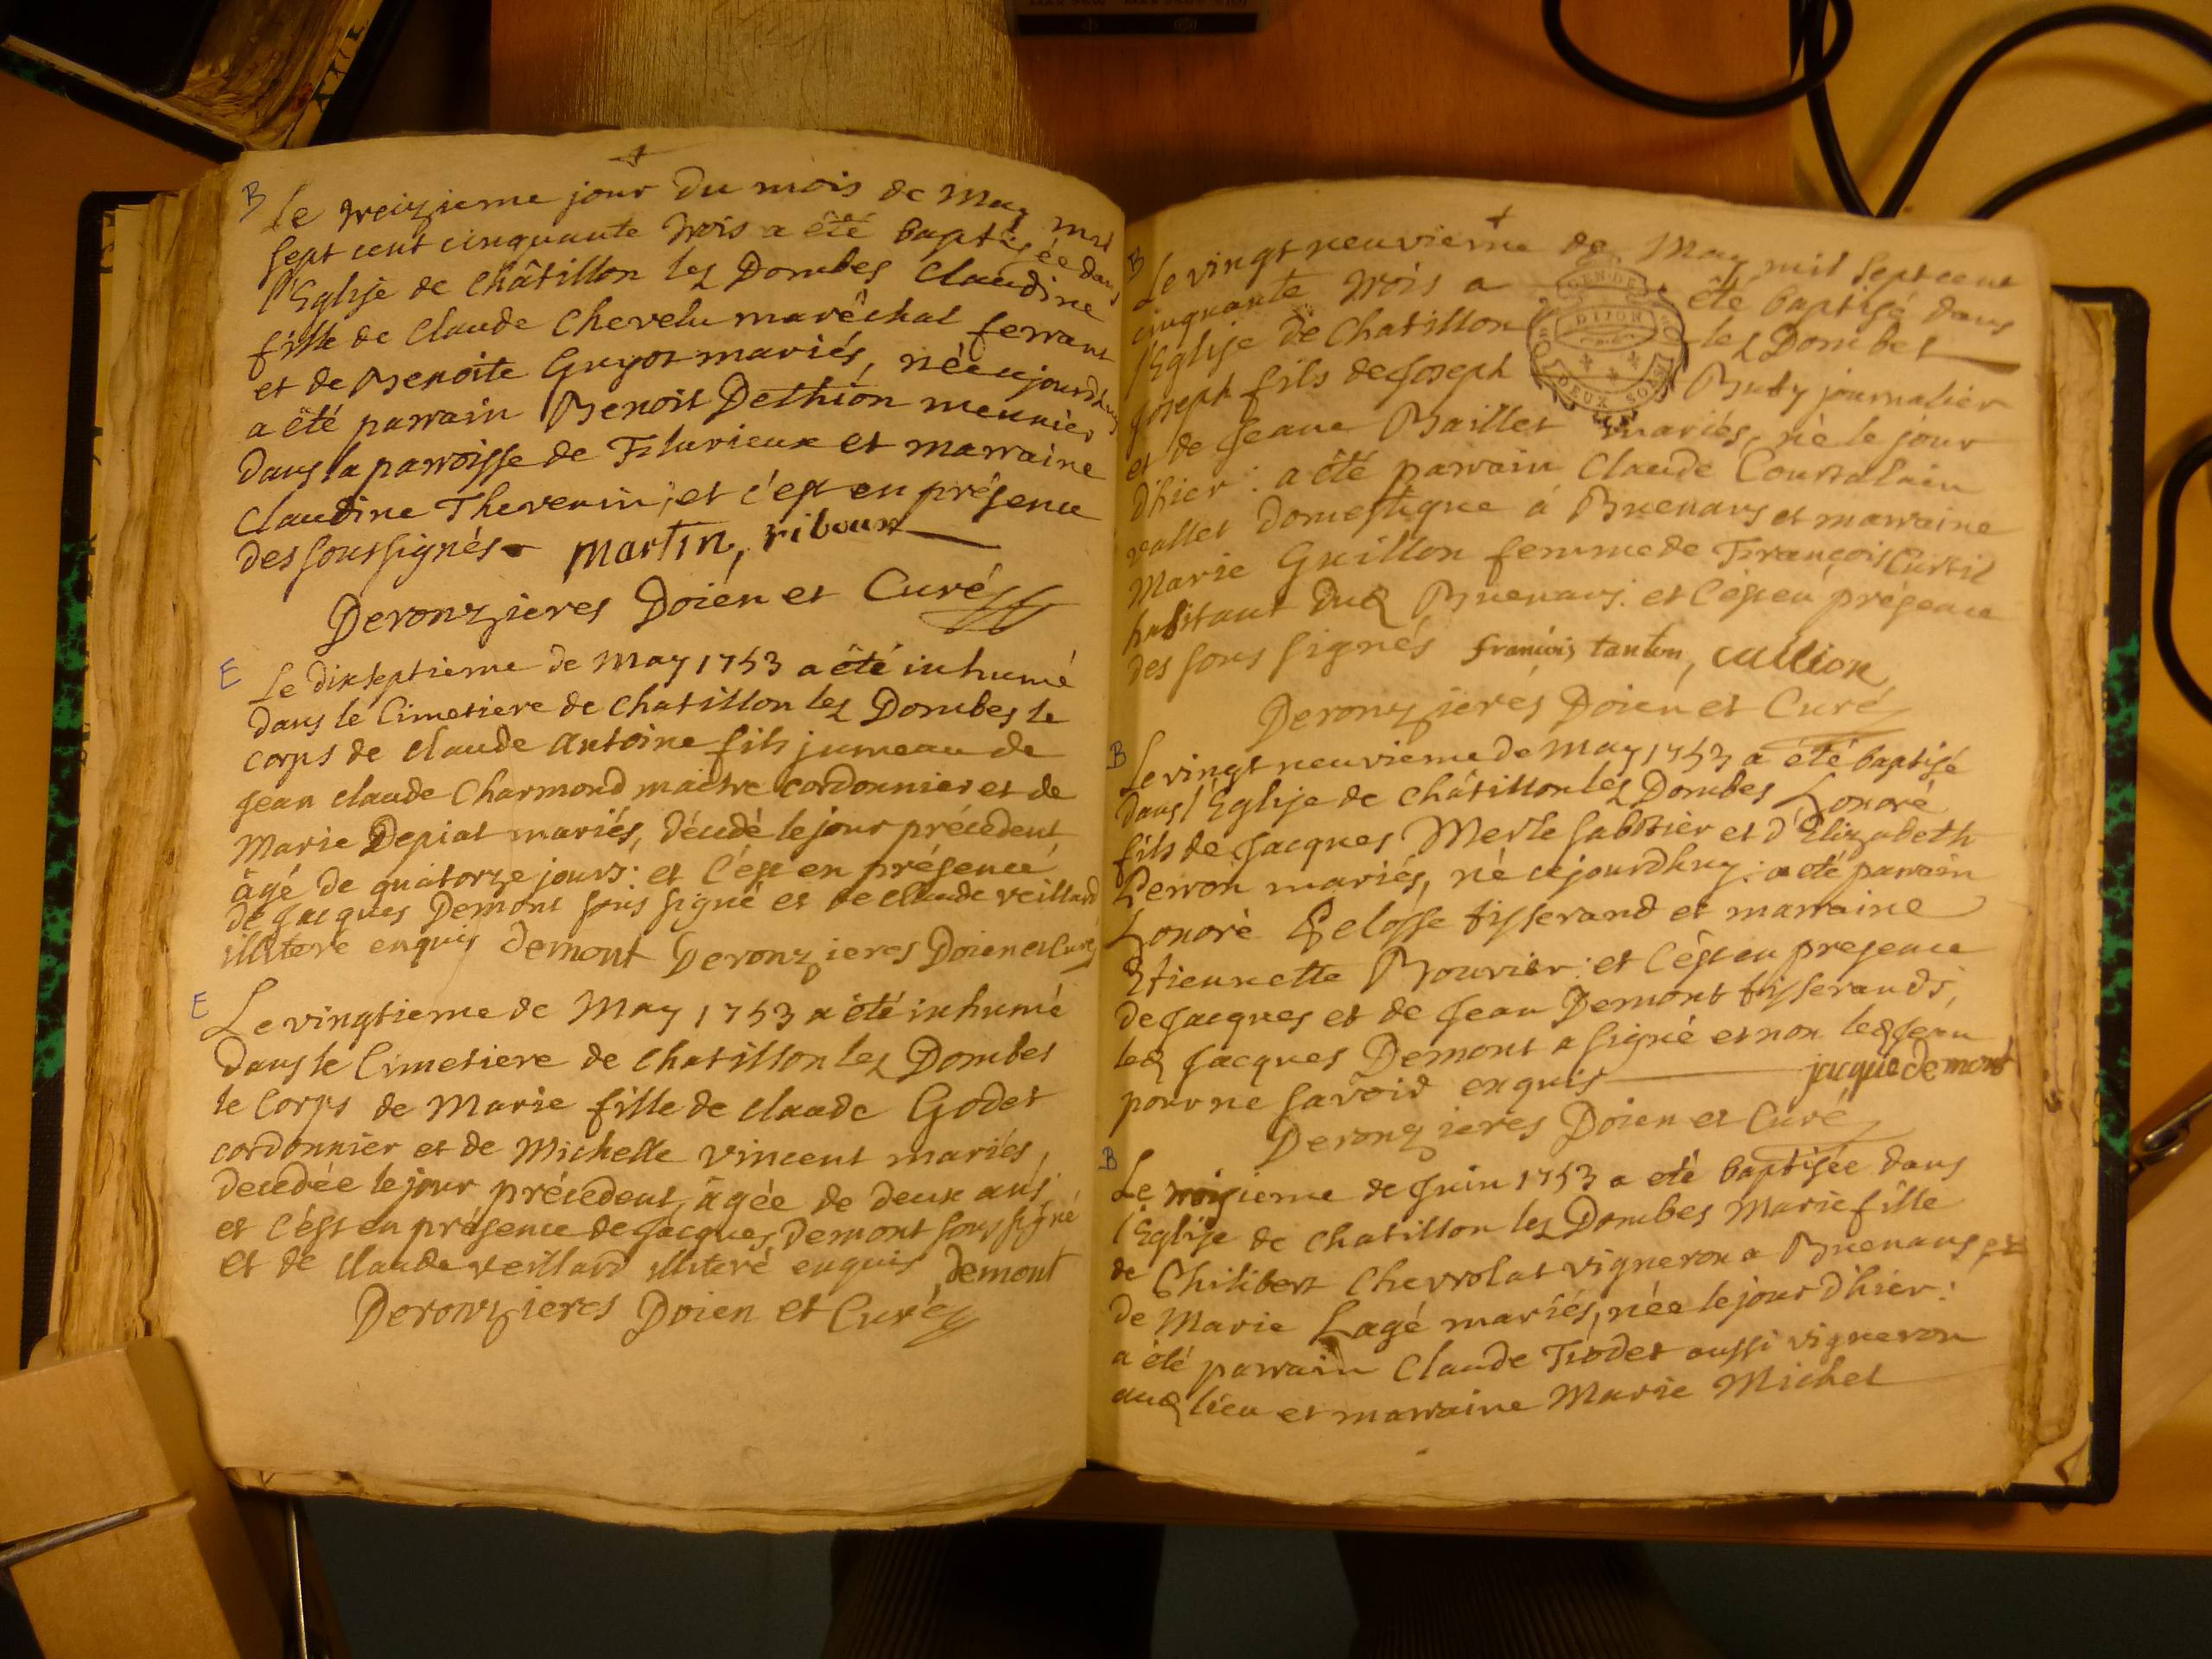 B Le treizieme jour du mois de May mil
sept cent cinquante trois a été baptisée dans
l'Eglise de Châtillon lez Dombes Claudine
fille de Claude Chevelu marêchal ferrant
et de Benoite Guyot mariés, née cejourdhuy
a été parrain Benoit Dethion meunier
dans la parroisse de Flurieux et marraine
Claudine Thevenin; et c'est en présence
des soussignés martin, riboux
Deronzieres Doïen et Curé
E Le dixseptieme de May 1753 a été inhumé
dans le Cimetiere de Chatillon lez Dombes le
corps de Claude Antoine fils jumeau de
Jean Claude Charmond maitre cordonnier et de
Marie Depiat mariés, décédé le jour précedent,
âgé de quatorze jours: et c'est en présence
de Jacques Demont sous signé et de Claude veillard
illiteré enquis demont Deronzieres Doien et Curé
E Le vingtieme de May 1753 a été inhumé
dans le Cimetiere de Chatillon lez Dombes
le corps de Marie fille de Claude Godet
cordonnier et de Michelle Vincent mariés,
decedée le jour précedent, âgée de deux ans
et c'est en présence de Jacques Demont sous signé
et de Claude veillard illiteré enquis demont
Deronzieres Doien et Curé
B Le vingt neuvieme de May mil sept cent
cinquante trois a été baptisé dans
l'Eglise de Chatillon lez Dombes
Joseph fils de Joseph Buty journalier
et de Jeane Baillet mariés, né le jour
d'hier: a été parrain Claude Courtalain
vallet domestique à Buenans et marraine
Marie Guillon femme de François Curtil
habitant dud Buenans. et c'est en présence
des sous signés françois tantin, callion
Deronzieres Doien et Curé
B Le vingt neuvieme de May 1753 a été baptisé
dans l'Eglise de Châtillon lez Dombes Honoré
fils de Jacques Merle sabotier et d'Elizabeth
Perron mariés, né cejourdhuy: a été parrain
Honoré Pelosse tisserand et marraine
Etiennette Bouvier: et c'est en presence
de Jacques et de Jean Demont tisserands,
led Jacques Demont a signé et non led Jean
pour ne savoir enquis jacque demont
Deronzieres Doien et Curé
B Le troisieme de Juin 1753 a eté baptisée dans
l'Eglise de Chatillon lez Dombes Marie fille
de Philibert Chevrolat vigneron a Buenans et
de Marie Lagé mariés, née le jour d'hier:
a été parrain Claude Tiodet aussi vigneron
aud lieu et marraine Marie Michel
GEN. DE DIJON
DEUX SOLS